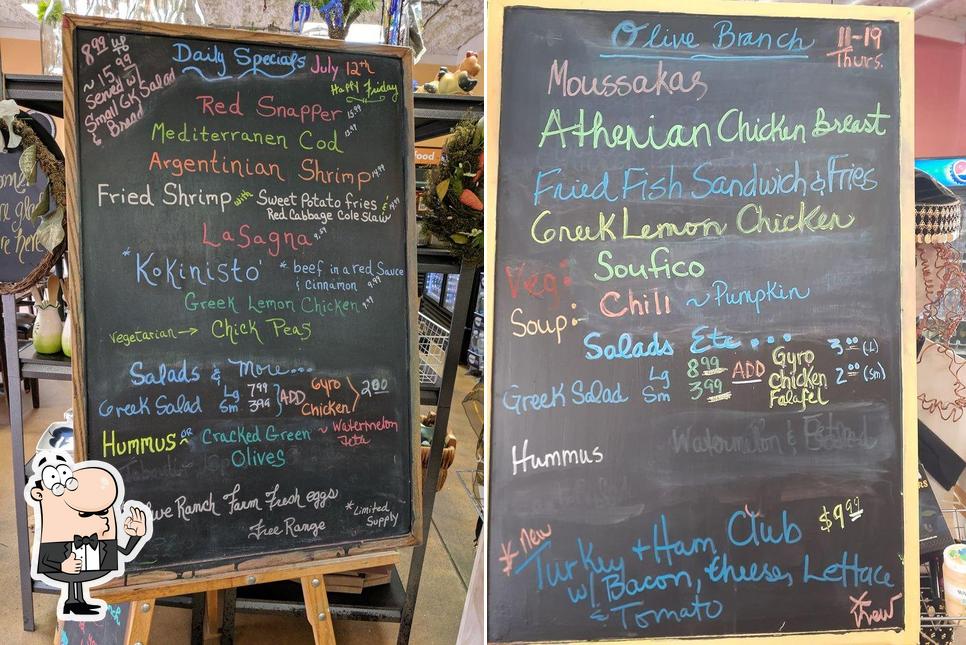 8.99 up
~ 15.99
Served w/
Small GK Salad
& Bread
Daily Specials July 12th
Happy Friday
Red Snapper 13.99
Mediterranen Cod 13.99
Argentinian Shrimp 14.99
Fried Shrimp with Sweet Potato fries & 14.99
Red Cabbage Cole Slaw
LaSagna 9.59
"Kokinisto" * beef in a red Sauce
& cinnamon 9.99
Greek Lemon Chicken 9.99
Vegetarian → Chick Peas
Salads & More...
Greek Salad Lg 7.99 ADD Gyro 2.00
Sm 3.99 Chicken
Hummus or Cracked Green ~ Watermelon
Olives Feta
Ranch Farm Fresh eggs
Free Range
*Limited
Supply
food
Olive Branch 11-19
Thurs.
Moussakas
Athenian Chicken Breast
Fried Fish Sandwich & Fries
Greek Lemon Chicken
Veg: Soufico
Soup:- Chili ~ Pumpkin
Salads Etc...
Greek Salad Lg 8.99 ADD Gyro 3.00 (L)
Sm 3.99 Chicken 2.00 (Sm)
Falafel
Watermelon &
Hummus
* New
Turkey + Ham Club $9.99
w/ Bacon, cheese, Lettace
& Tomato
*New